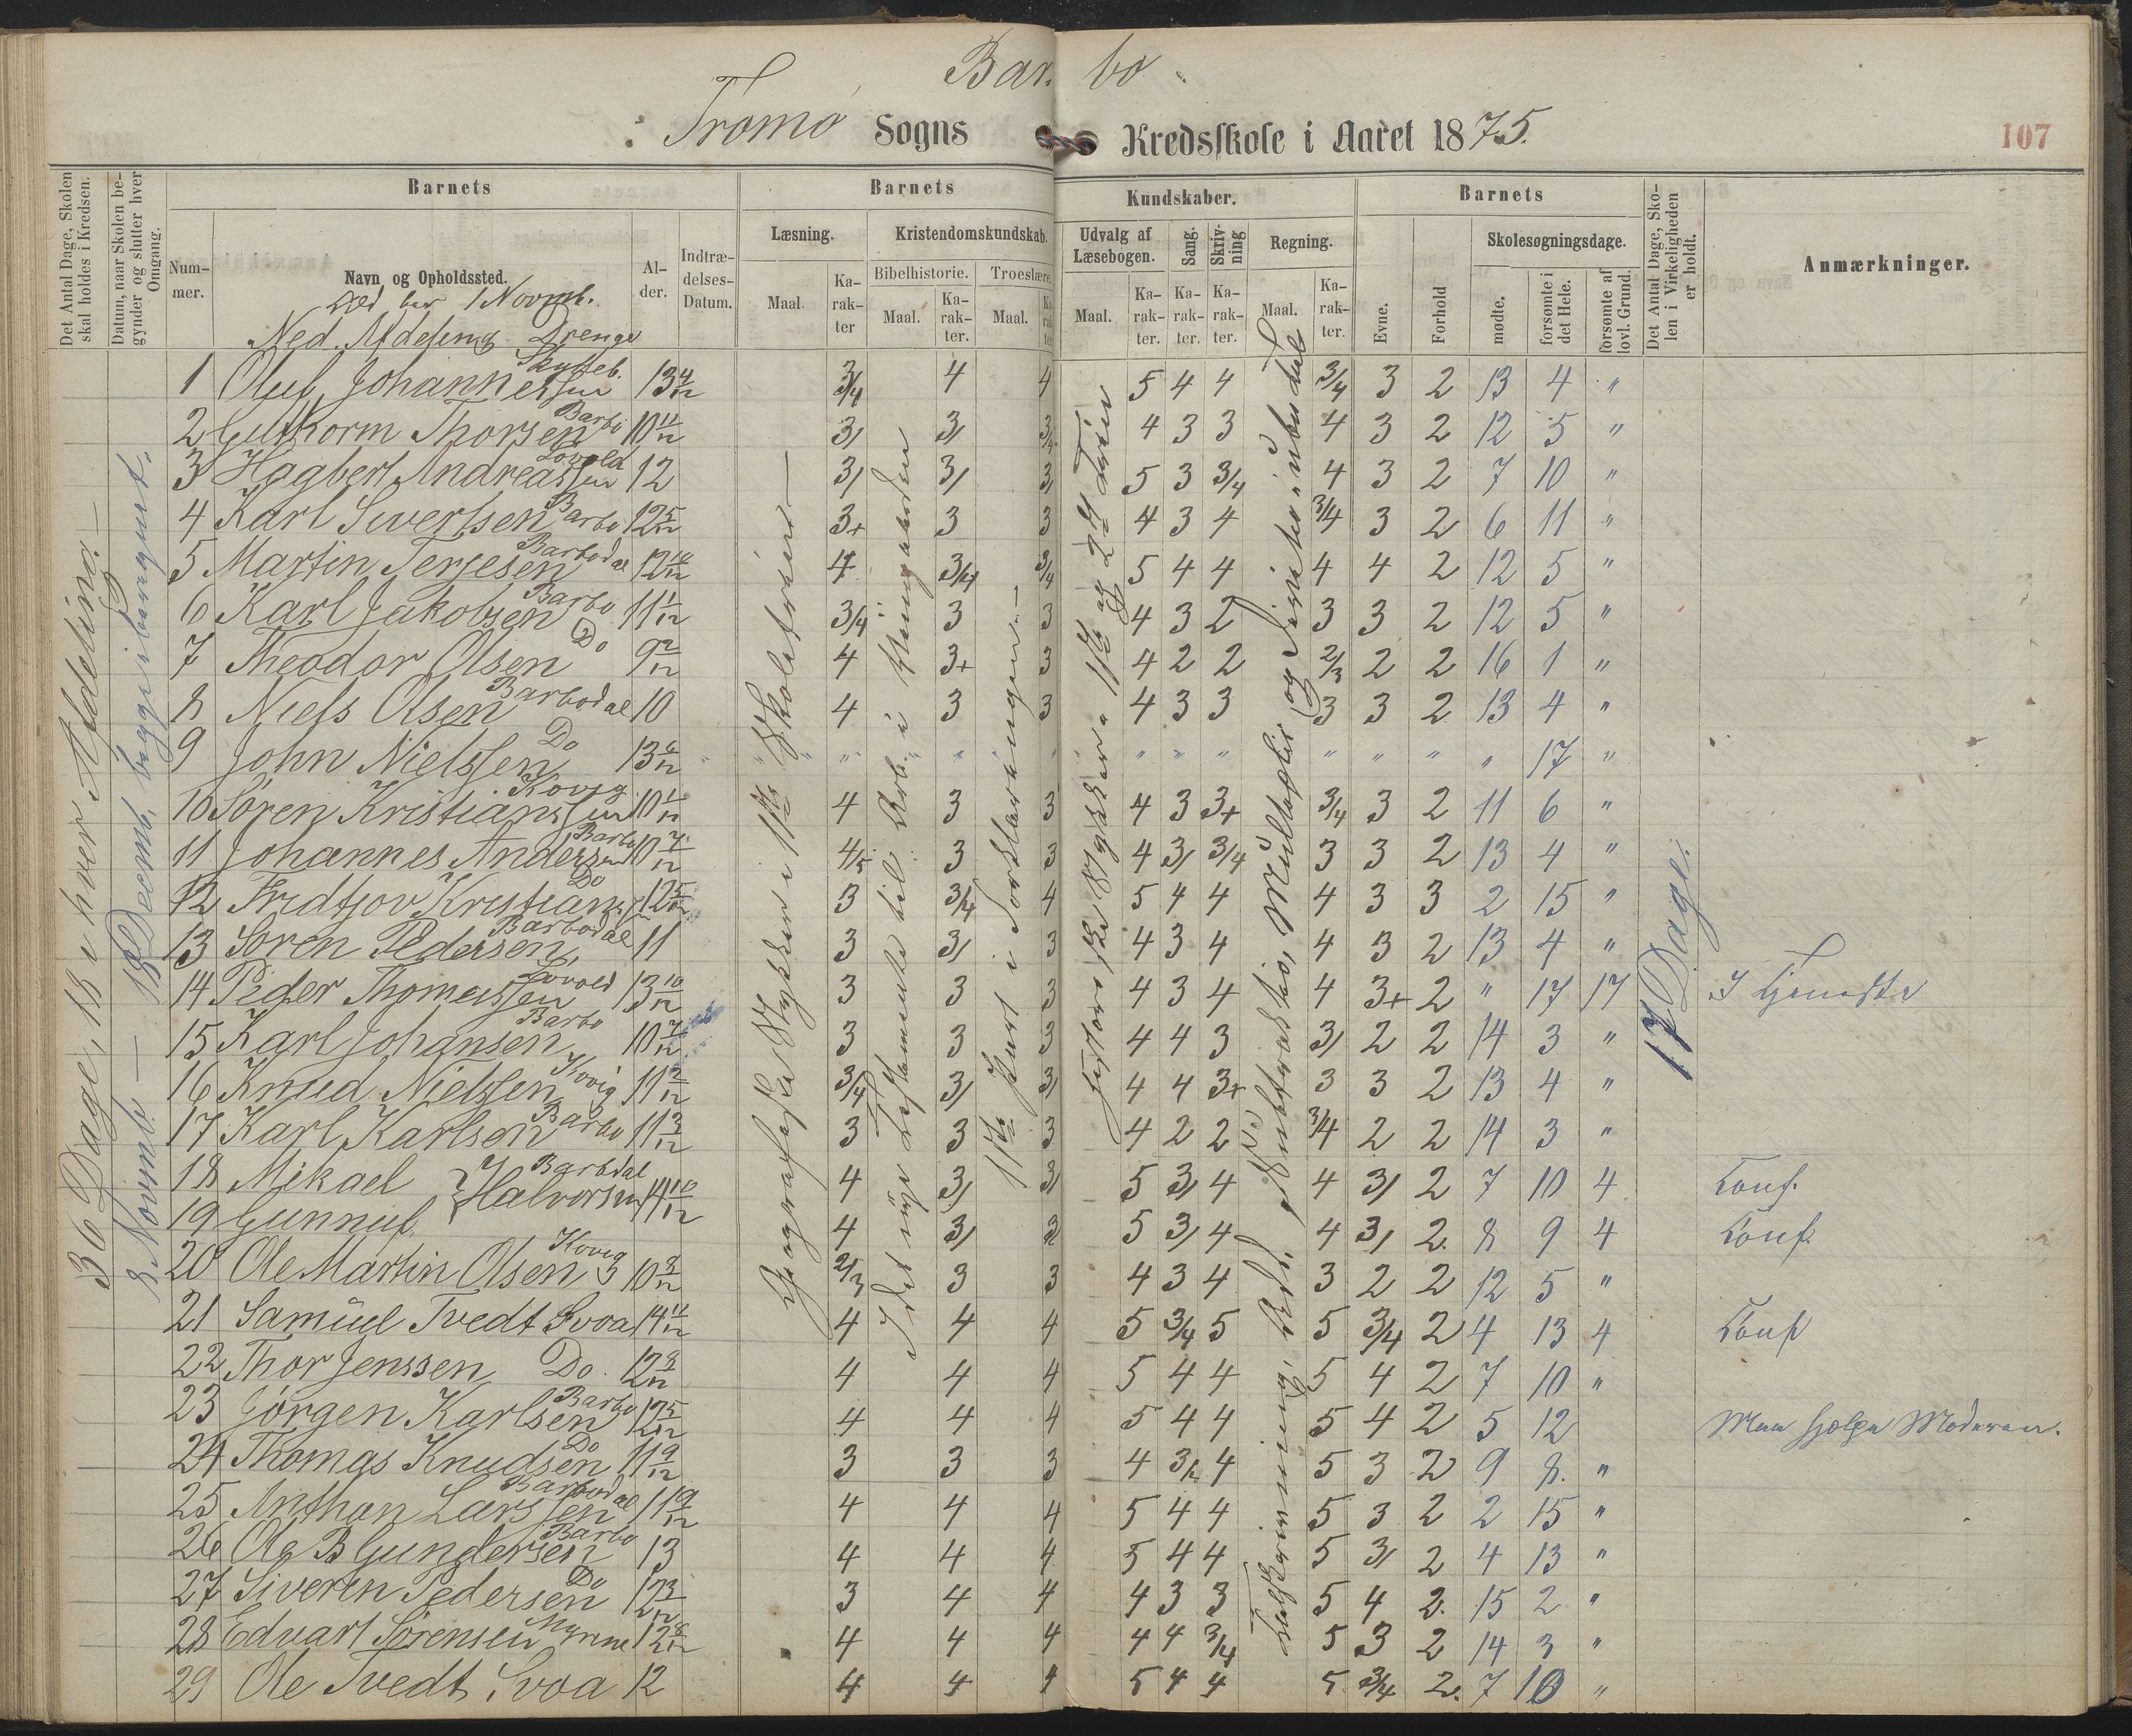 Barbo
Tromø Sogns Kredsskole i Aaret 1875.
107
Det Antal Dage, Skolen skal holdes i Kredsen.
Datum, naar Skolen begynder og slutter hver Omgang.
Barnets
Nummer.
Navn og Opholdssted.
Alder.
Indtrædelses-Datum.
Barnets
Læsning.
Maal.
Karakter
Kristendomskundskab.
Bibelhistorie.
Maal.
Karakter.
Troeslære
Maal.
Kundskaber.
Udvalg af Læsebogen.
Maal.
Karakter.
Sang.
Karakter.
Skrivning
Karakter.
Regning.
Maal.
Karakter.
Barnets
Evne.
Forhold
Skolesøgningsdage.
mødte.
forsømte i det Hele.
forsømte af lovl. Grund.
Det Antal Dage, Skolen i Virkeligheden er holdt.
Anmærkninger.
Ned. Afdeling Drenge
36 Dage, 18 i hver Afdeling.
8 Novemb. — 18 Decemb. begge iberegnet.
17 Dage.
1 Oluf Johannessen 13 4/12 3/4 4 4 5 4 4 3/4 3 2 13 4 "
2 Guthorm Thorsen Barbo 10 11/12 3/ 3/ 3/4 4 3 3 4 3 2 12 5 "
3 Hagbert Andreassen Lovold 12 3/ 3/ 3/ 5 3 3/4 4 3 2 7 10 "
4 Karl Sivertsen Barbo 12 5/12 3+ 3 3 4 3 4 3/4 3 2 6 11 "
5 Martin Terjesen Barbodal 12 10/12 4 3/4 3/4 5 4 4 4 4 2 12 5 "
6 Karl Jakobsen Barbo 11 1/12 3/4 3 3 4 3 2 3 3 2 12 5 "
7 Theodor Olsen Do 9 2/12 4 3+ 3 4 2 2 2/3 2 2 16 1 "
8 Niels Olsen Barbodal 10 4 3 3 4 3 3 3 3 2 13 4 "
9 John Nielssen Do 13 6/12 " " " " " " " " " " 17 "
10 Søren Kristianssen Kovig 10 1/12 4 3 3 4 3 3+ 3/4 3 2 11 6 "
11 Johannes Anderssen Barbo 10 7/12 4/5 3 3 4 3/ 3/4 3 3 2 13 4 "
12 Fridtjov Kristians. Do 12 5/12 3 3/4 4 5 4 4 4 3 3 2 15 "
13 Soren Pedersen Barbodal 11 3 3/ 3 4 3 4 4 3 2 13 4 "
14 Peder Thomassen Lovold 13 10/12 3 3 3 4 3 4 4 3+ 2 " 17 17 I Tjeneste
15 Karl Johansen Barbo 10 7/12 3 3 3 4 4 3 3/ 2 2 14 3 "
16 Knud Nielssen Kovig 11 2/12 3/4 3/ 3/ 4 4 3+ 3 3 2 13 4 "
17 Karl Karlsen Barbo 11 3/12 3 3 3 4 2 2 3/4 2 2 14 3 "
18 Mikael } Halvorsen Barbdal 14 10/12 4 3/ 3/ 5 3/ 4 4 3/ 2 7 10 4 Conf.
19 Gunnuf 4 3/ 3 5 3/ 4 4 3/ 2 8 9 4 Conf.
20 Ole Martin Olsen Kovig 10 8/12 2/3 3 3 4 3 4 3 2 2 12 5 "
21 Samuel Tvedt Svoa 14 11/12 4 4 4 5 3/4 5 5 3/4 2 4 13 4 Conf
22 Thor Jenssen Do. 12 8/12 4 4 4 5 4 4 5 4 2 7 10 "
23 Jørgen Karlsen Barbo 12 5/12 4 4 4 5 4 4 5 4 2 5 12 Maa hjælpe Moderen.
24 Thomas Knudsen Do 11 9/12 3 3 3 4 3/4 4 5 3 2 9 8. "
25 Anthon Larssen Barbodal 11 9/12 4 4 4 5 4 4 5 3 2 2 15 "
26 Ole B Gundersen Barbo 13 4 4 4 5 4 4 5 3/ 2 4 13 "
27 Siveren Pedersen Do 12 3/12 3 4 4 4 3 3 5 4 2 15 2 "
28 Edvart Sørensen Myrene 12 8/12 4 4 4 4 4 3/4 5 3 2 14 3 "
29 Ole Tvedt Svoa 12 4 4 4 5 4 4 5 3/4 2. 7 10 "